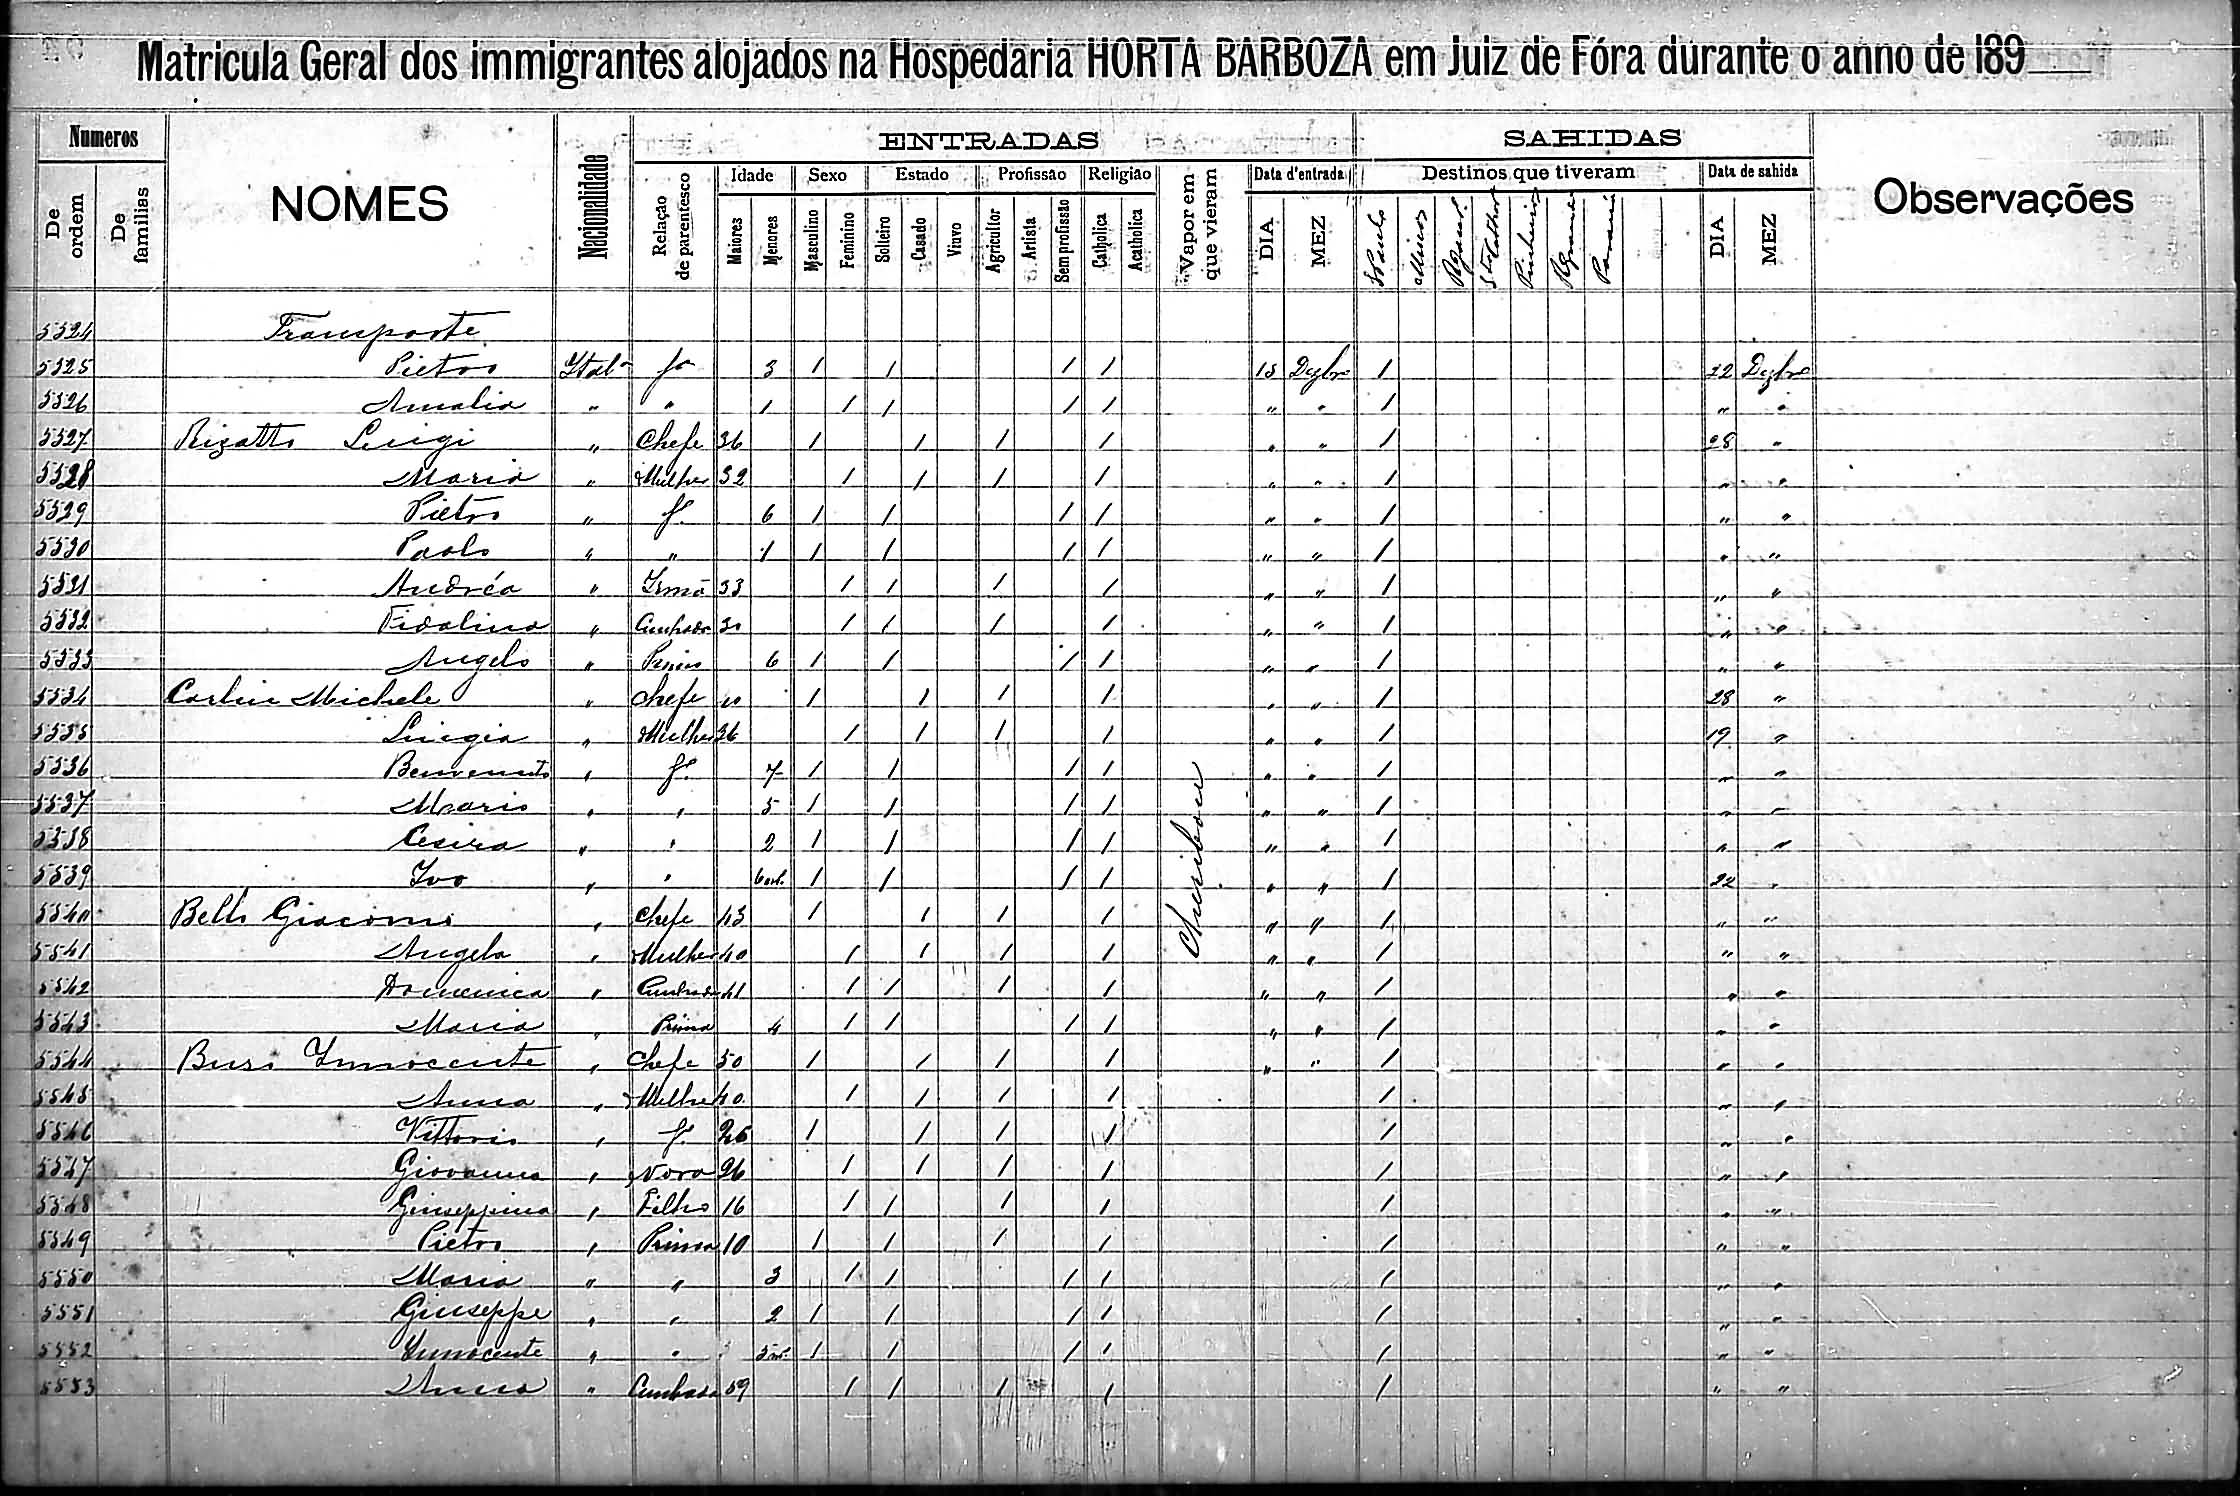 Matricula Geral dos immigrantes alojados na Hospedaria HORTA BARBOZA em Juiz de Fóra durante o anno de 189
Numeros NOMES Nacionalidade ENTRADAS SAHIDAS Observações
De ordem De familias Relação de parentesco Idade Sexo Estado Profissão Religião Vapor em que vieram Data d'entrada Destinos que tiveram Data de sahida
Maiores Menores Masculino Feminino Solteiro Casado Viuvo Agricultor Artista Sem profissão Catholica Acatholica DIA MEZ S Paulo Minas DIA MEZ
5524 Transporte
5525 Pietro Ital.ª fº 3 1 1 1 1 15 Dezbro 1 22 Dezbro
5526 Amalia " " 1 1 1 1 1 " " 1 " "
5527 Rizatto Luigi " Chefe 36 1 1 1 1 " " 1 28 "
5528 Maria " Mulher 32 1 1 1 1 " " 1 " "
5529 Pietro " fº 6 1 1 1 1 " " 1 " "
5530 Paolo " " 1 1 1 1 1 " " 1 " "
5531 Andréa " Irmã 33 1 1 1 1 " " 1 " "
5532 Fidalina " Cunhada 30 1 1 1 1 " " 1 " "
5533 Angelo " Primo 6 1 1 1 1 " " 1 " "
5534 Carlin Michele " Chefe 40 1 1 1 1 " " 1 28 "
5535 Luigia " Mulher 36 1 1 1 1 " " 1 19 "
5536 Benvenuto " fº 7 1 1 1 1 " " 1 " "
5537 Mario " " 5 1 1 1 1 " " 1 " "
5538 Cesira " " 2 1 1 1 1 " " 1 " "
5539 Ivo " " 6 1 1 1 1 " " 1 22 "
5540 Bello Giacomo " Chefe 43 1 1 1 1 " " 1 " "
5541 Angela " Mulher 40 1 1 1 1 " " 1 " "
5542 Domenica " Cunhada 41 1 1 1 1 " " 1 " "
5543 Maria " Prima 4 1 1 1 1 " " 1 " "
5544 Buso Innocente " Chefe 50 1 1 1 1 " " 1 " "
5545 Anna " Mulher 40 1 1 1 1 1 " "
5546 Vittorio " fº 26 1 1 1 1 1 " "
5547 Giovanna " Nora 26 1 1 1 1 1 " "
5548 Giuseppina " Filha 16 1 1 1 1 1 " "
5549 Pietro " Primo 10 1 1 1 1 1 " "
5550 Maria " " 3 1 1 1 1 1 " "
5551 Giuseppe " " 2 1 1 1 1 1 " "
5552 Innocente " " 5 m. 1 1 1 1 1 " "
5553 Anna " Cunhada 59 1 1 1 1 1 " "